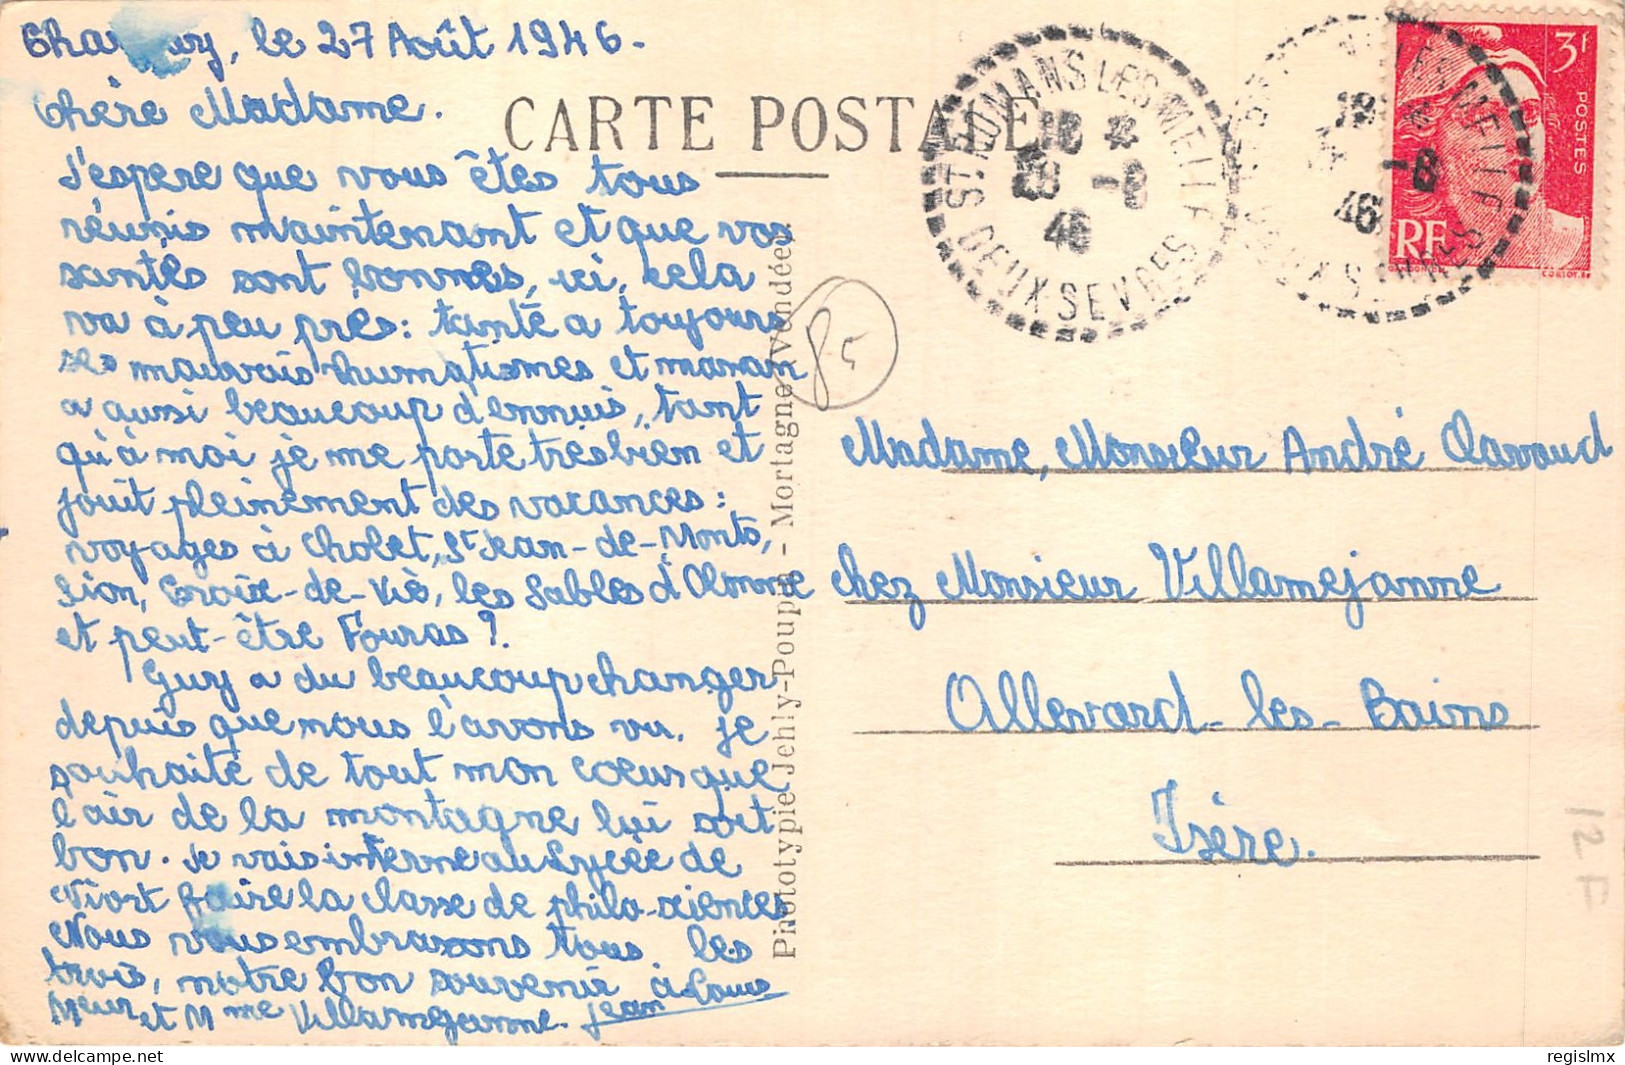 le 27 Août 1946.
Chère Madame.
J'espere que vous êtes tous
réunis maintenant et que vos
santés sont bonnes, ici, cela
va à peu près: tante a toujours
ses mauvais rhumatismes et maman
a aussi beaucoup d'ennuis, tant
qu'à moi je me porte très bien et
jouit pleinement des vacances:
voyages à Cholet, St Jean-de-Monts,
Sion, Croix-de-Vie, les Sables d'Olonne
et peut-être Fouras?
Guy a du beaucoup changer
depuis que nous l'avons vu. je
souhaite de tout mon coeur que
l'air de la montagne lui soit
bon. Je vais interne au Lycée de
Niort faire la classe de philo-sciences
Nous vous embrassons tous les
trois, notre bon souvenir à
Meur et Mme Villamejeanne. Jean
CARTE POSTALE
Phototypie Jehly-Poupin - Mortagne (Vendée)
85
ST ROMANS LES MELLE
18 *
28 -8
46
DEUX SEVRES
18 *
-8
46
3F
POSTES
RF
GANDON
Madame, Monsieur André Clavaud
chez Monsieur Villamejeanne
Allevard-les-Bains
Isère.
12F
regislmx